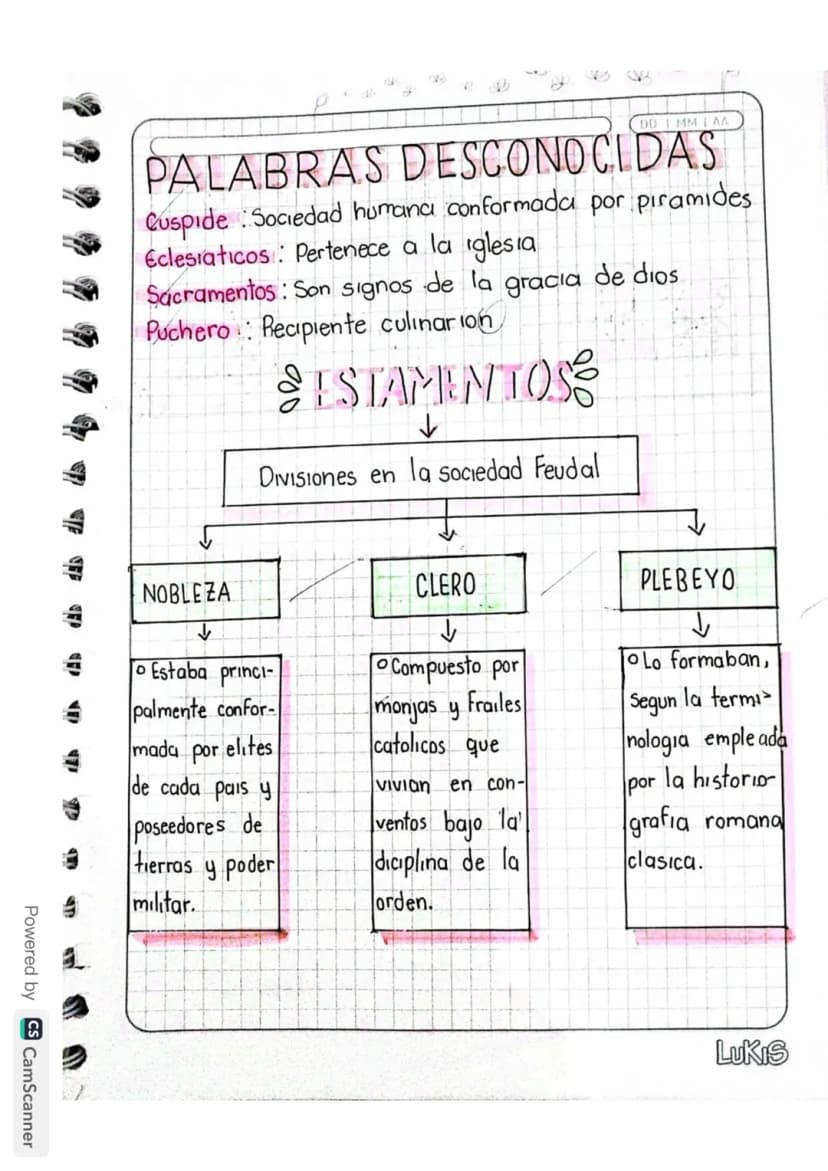 DD | MM | AA
PALABRAS DESCONOCIDAS
Cuspide : Sociedad humana conformada por piramides
Eclesiaticos : Pertenece a la iglesia
Sacramentos : Son signos de la gracia de dios
Puchero : Recipiente culinarion
ESTAMENTOS
Divisiones en la sociedad Feudal
NOBLEZA
CLERO
PLEBEYO
Estaba princi-
palmente confor-
mada por elites
de cada pais y
poseedores de
tierras y poder
militar.
Compuesto por
monjas y frailes
catolicos que
vivian en con-
ventos bajo la
diciplina de la
orden.
Lo formaban,
segun la termi-
nologia empleada
por la historio-
grafia romana
clasica.
LUKIS
Powered by CS CamScanner